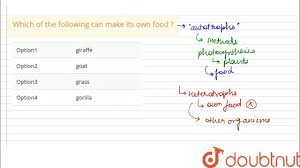 Which of the following can make its own food ?
Option1 giraffe
Option2 goat
Option3 grass
Option4 gorilla
"autotrophs"
methods
photosynthesis
plants
food
Heterotrophs
own food
other organisms
doubtnut